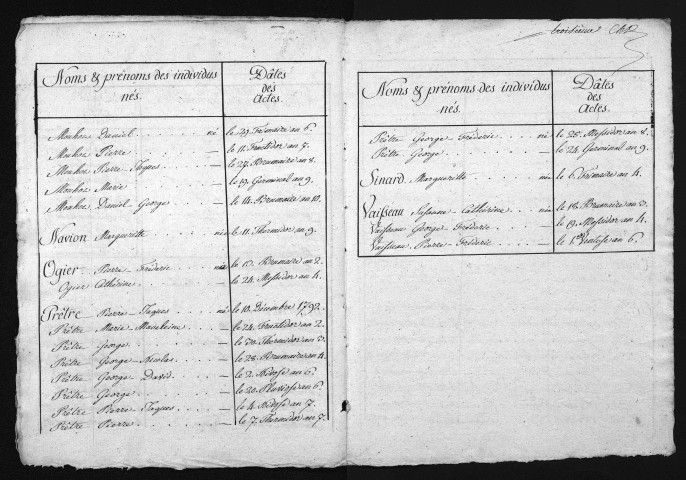 Noms & prénoms des individus nés.
Dâtes des Actes.
Mouhot Daniel. né le 29. Frimaire an 6.
Mouhot Pierre. — le 11. Fructidor an 7.
Mouhot Pierre Jaques — le 27. Brumaire an 8.
Mouhot Marie — le 19. Germinal an 9.
Mouhot Daniel George. — le 14. Brumaire an 10.
Navion Marguerite née le 11. Thermidor an 9.
Ogier Pierre Fréderic né Brumaire an 2.
Ogier Cathérine — le 24. Messidor an 4.
Prêtre Pierre Jaques né le 10. Décembre 1792.
Prêtre Marie Madeleine — le 24. Fructidor an 2.
Prêtre George — Thermidor an 3.
Prêtre George Nicolas — le 28. Brumaire an 4.
Prêtre George David — le 2. Nivose an 6.
Prêtre George — le 20. Pluviose an 6
Prêtre Pierre Jaques — le 4. Nivose an 7.
Prêtre Pierre — le 7. Thermidor an 7.
troisième
Noms & prénoms des individus nés.
Dâtes des Actes.
Prêtre George Fréderic né le 25. Messidor an 8.
Prêtre George — le 24. Germinal an 9.
Sinard Marguerite née le 6. Frimaire an 4.
Vaisseau Susanne Cathérine née le 18. Brumaire an 3.
Vaisseau George Fréderic — le 19. Messidor an 4.
Vaisseau Pierre Fréderic — le 1er Ventose an 6.